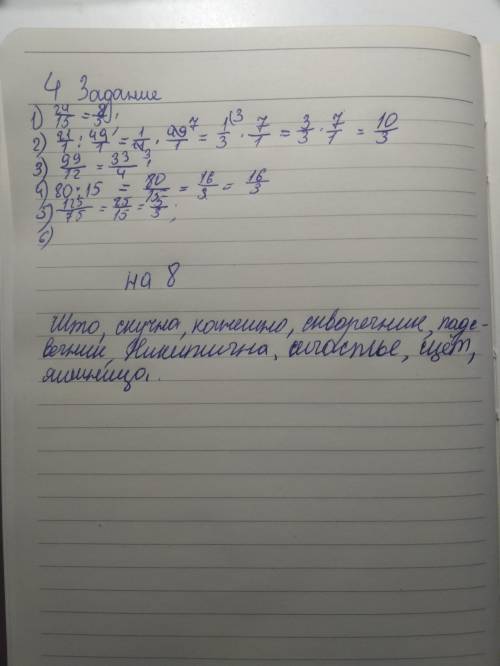 4 Задание
1) 24/15 = 8/5;
2) 21/1 : 49/1 = 1/21 · 49/1 7 = 1/3 (3 · 7/1 = 3/3 · 7/1 = 10/3
3) 99/12 = 33/4;
4) 80:15 = 80/15 = 16/3 = 16/3
5) 125/75 = 25/15 = 5/3;
6)
на 8
Што, скучна, конешно, скваречник, падс-
вечник, Никитична, счастье, щёт,
яишница.